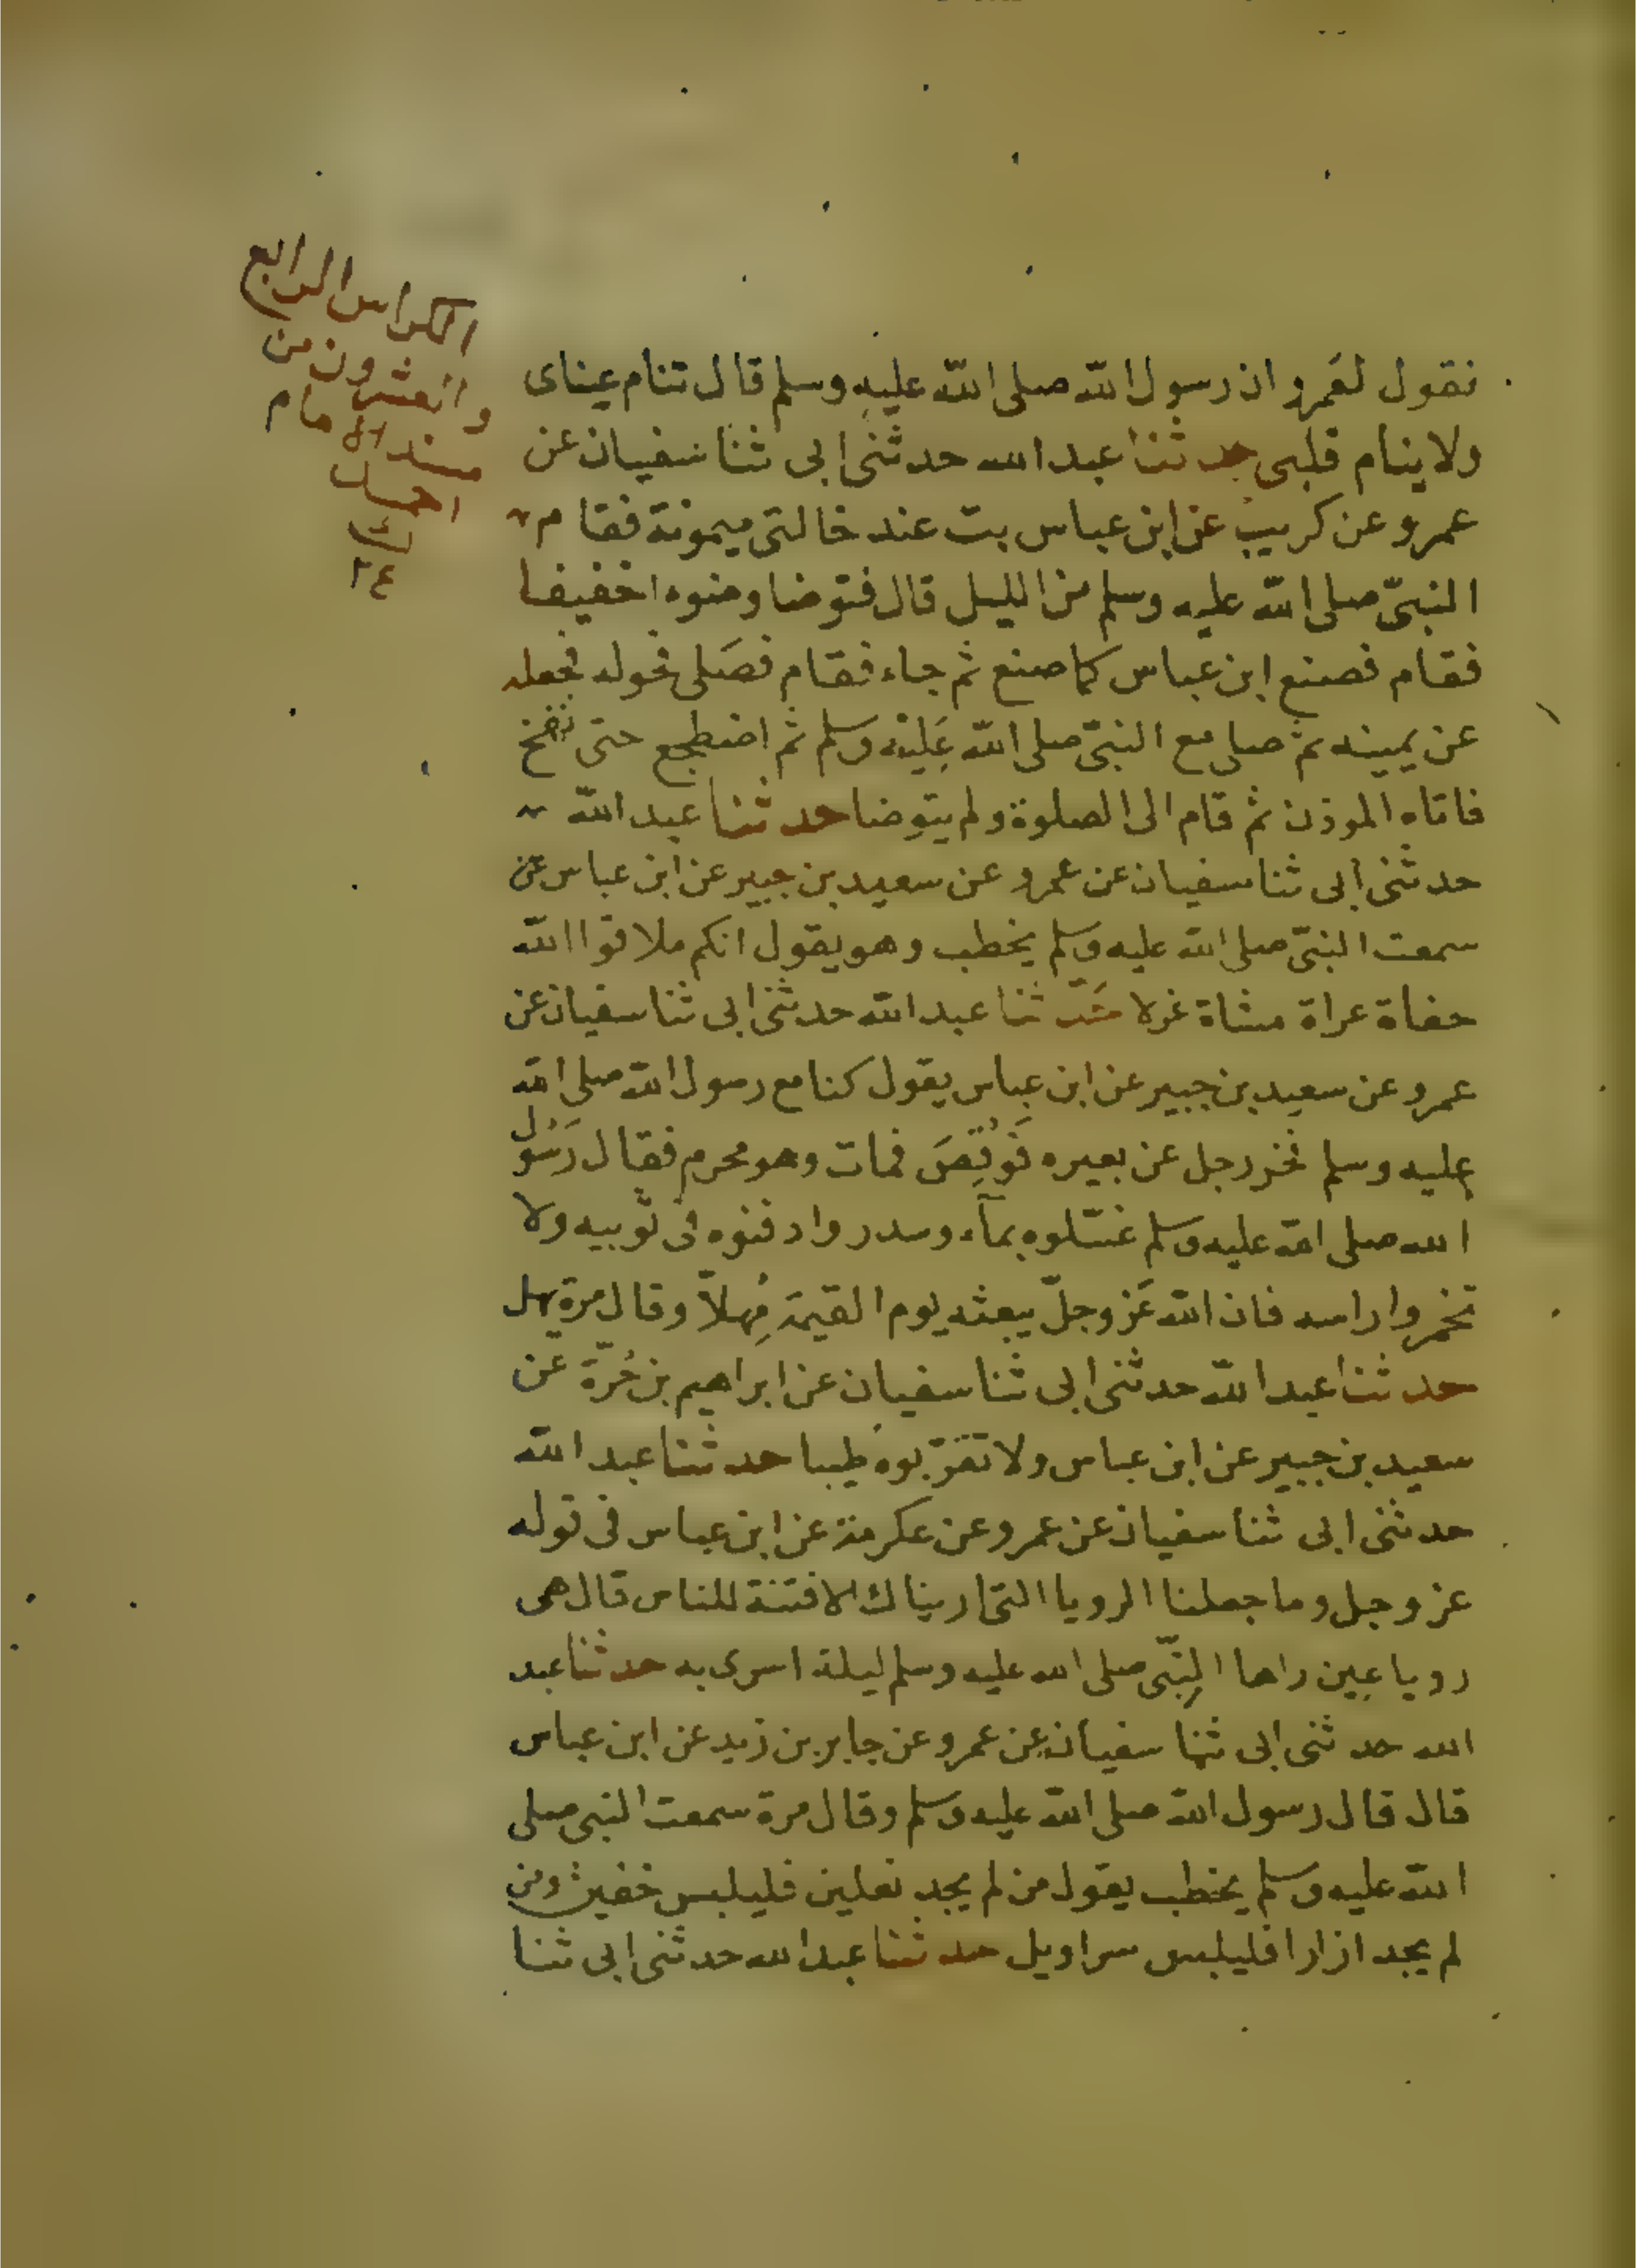 الكراس الرابع
والعشرون من
مسند الامام
احمد
٢٤
نقول لعَمرو ان رسول الله صلى الله عليه وسلم قال تنام عيناى
ولا ينام قلبى حدثنا عبد الله حدثنى ابى ثنا سفيان عن
عمرو عن كريب عن ابن عباس بت عند خالتى ميمونة فقام
النبىّ صلى الله عليه وسلم من الليل قال فتوضا وضوءا خفيفا
فقام فصنع ابن عباس كما صنع ثم جاء فقام فصَلى فحوله فجعله
عن يمينه ثم صلى مع النبىّ صلى الله عَليْه وسلم ثم اضطجع حتى نفخ
فاتاه الموذن ثم قام الى الصلوة ولم يتوضا حدثنا عبد الله
حدثنى ابى ثنا سفيان عن عمرو عن سعيد بن جبير عن ابن عباس عن
سمعت النبىّ صلى الله عليه وسلم يخطب وهو يقول انكم ملاقوا الله
حفاة عراة مشاة غرلا حَدّثنا عبد الله حدثنى ابى ثنا سفيان عن
عمرو عن سعيد بن جبير عن ابن عباس يقول كنا مع رسول الله صلى الله
عليه وسلم فخر رجل عن بعيره فَوُقِصَ فمات وهو محرم فقال رَسُول
الله صلى الله عليه وسلم غسّلوه بمآء وسدر وادفنوه فى ثوبيه ولا
تخمروا راسه فان الله عَز وجلّ يبعثه يوم القيمة مُهِلاّ وقال مرة يهل
حدثنا عبد الله حدثنى ابى ثنا سفيان عن ابراهيم بن حُرّة عن
سعيد بن جبير عن ابن عباس ولا تقرّبوه طيبا حدثنا عبد الله
حدثنى ابى ثنا سفيان عن عمرو عن عكرمة عن ابن عباس فى قوله
عز وجل وما جعلنا الرويا التى اريناك الا فتنة للناس قال هى
رويا عين راها النِبّى صلى الله عليه وسلم ليلة اسرى به حدثنا عبد
الله حدثنى ابى ثنا سفيان عن عمرو عن جابر بن زيد عن ابن عباس
قال قال رسول الله صلى الله عليه وسلم وقال مرة سمعت النبى صلى
الله عليه وسلم يخطب يقول من لم يجد نعلين فليلبس خفين ومن
لم يجد ازارا فليلبس سراويل حدثنا عبد الله حدثنى ابى ثنا